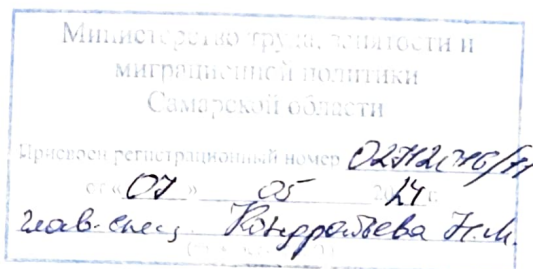 Министерство труда, занятости и
миграционной политики
Самарской области
Присвоен регистрационный номер
от «07» 05 2024 г.
глав. спец Кондратьева Н.М.